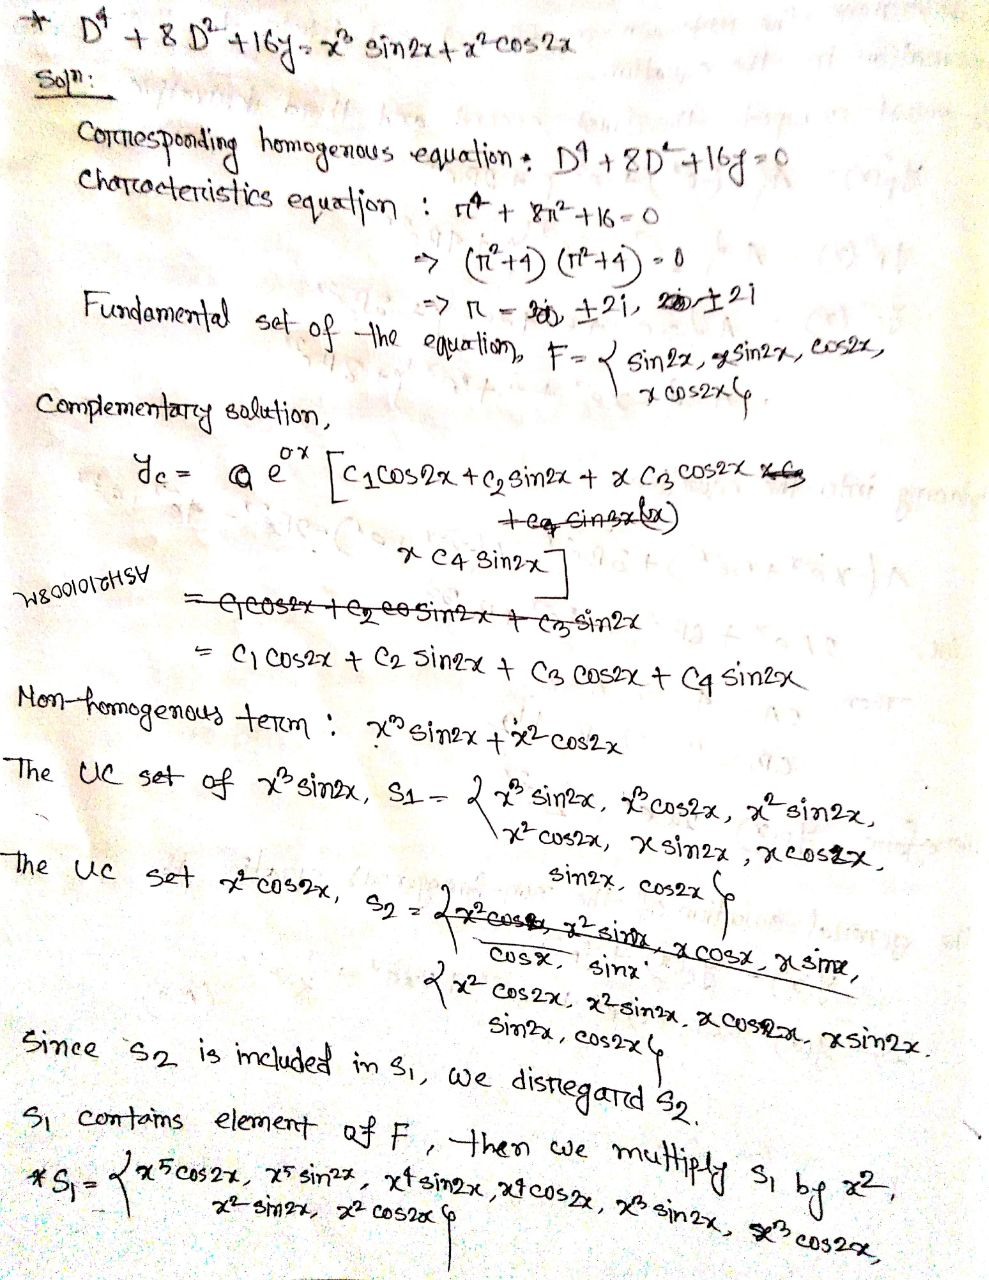 * D⁴ + 8D² + 16y = x³ sin2x + x² cos2x
Solⁿ:
Corresponding homogenous equation : D⁴ + 8D² + 16y = 0
Characteristics equation : r⁴ + 8r² + 16 = 0
=> (r²+4) (r²+4) = 0
=> r = ±2i, ±2i
Fundamental set of the equation, F = { sin2x, x sin2x, cos2x,
x cos2x}
Complementary solution,
yc = e^0x [c1 cos2x + c2 sin2x + x c3 cos2x
+ c4 sin2x (x)
x c4 sin2x]
ASH2101008M
= c1 cos2x + c2 co sin2x + c3 sin2x
= c1 cos2x + c2 sin2x + c3 cos2x + c4 sin2x
Non-homogenous term : x³ sin2x + x² cos2x
The UC set of x³ sin2x, S1 = { x³ sin2x, x³ cos2x, x² sin2x,
x² cos2x, x sin2x, x cos2x,
sin2x, cos2x }
The UC set x² cos2x, S2 = { x² cosx, x² sinx, x cosx, x sinx,
cosx, sinx
{ x² cos2x, x² sin2x, x cos2x, x sin2x.
sin2x, cos2x }
Since S2 is included in S1, we disregard S2.
S1 contains element of F, then we multiply S1 by x²,
* S1 = { x⁵ cos2x, x⁵ sin2x, x⁴ sin2x, x⁴ cos2x, x³ sin2x, x³ cos2x,
x² sin2x, x² cos2x }